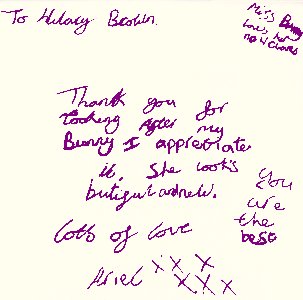 To Hilary Brown
Miss Bunny
loves her
new clothes
Thank you for
Looking After my
Bunny I appreciate
it. She look's
butiful and new.
You
are
the
best
Lots of Love
Ariel xx x
x x x